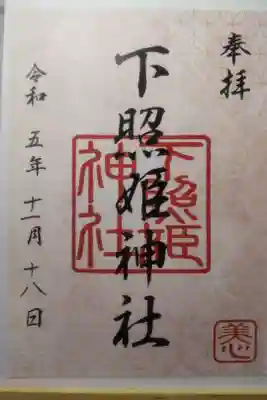 奉拝
下照姫神社
下照姫神社
令和五年十一月十八日
美心